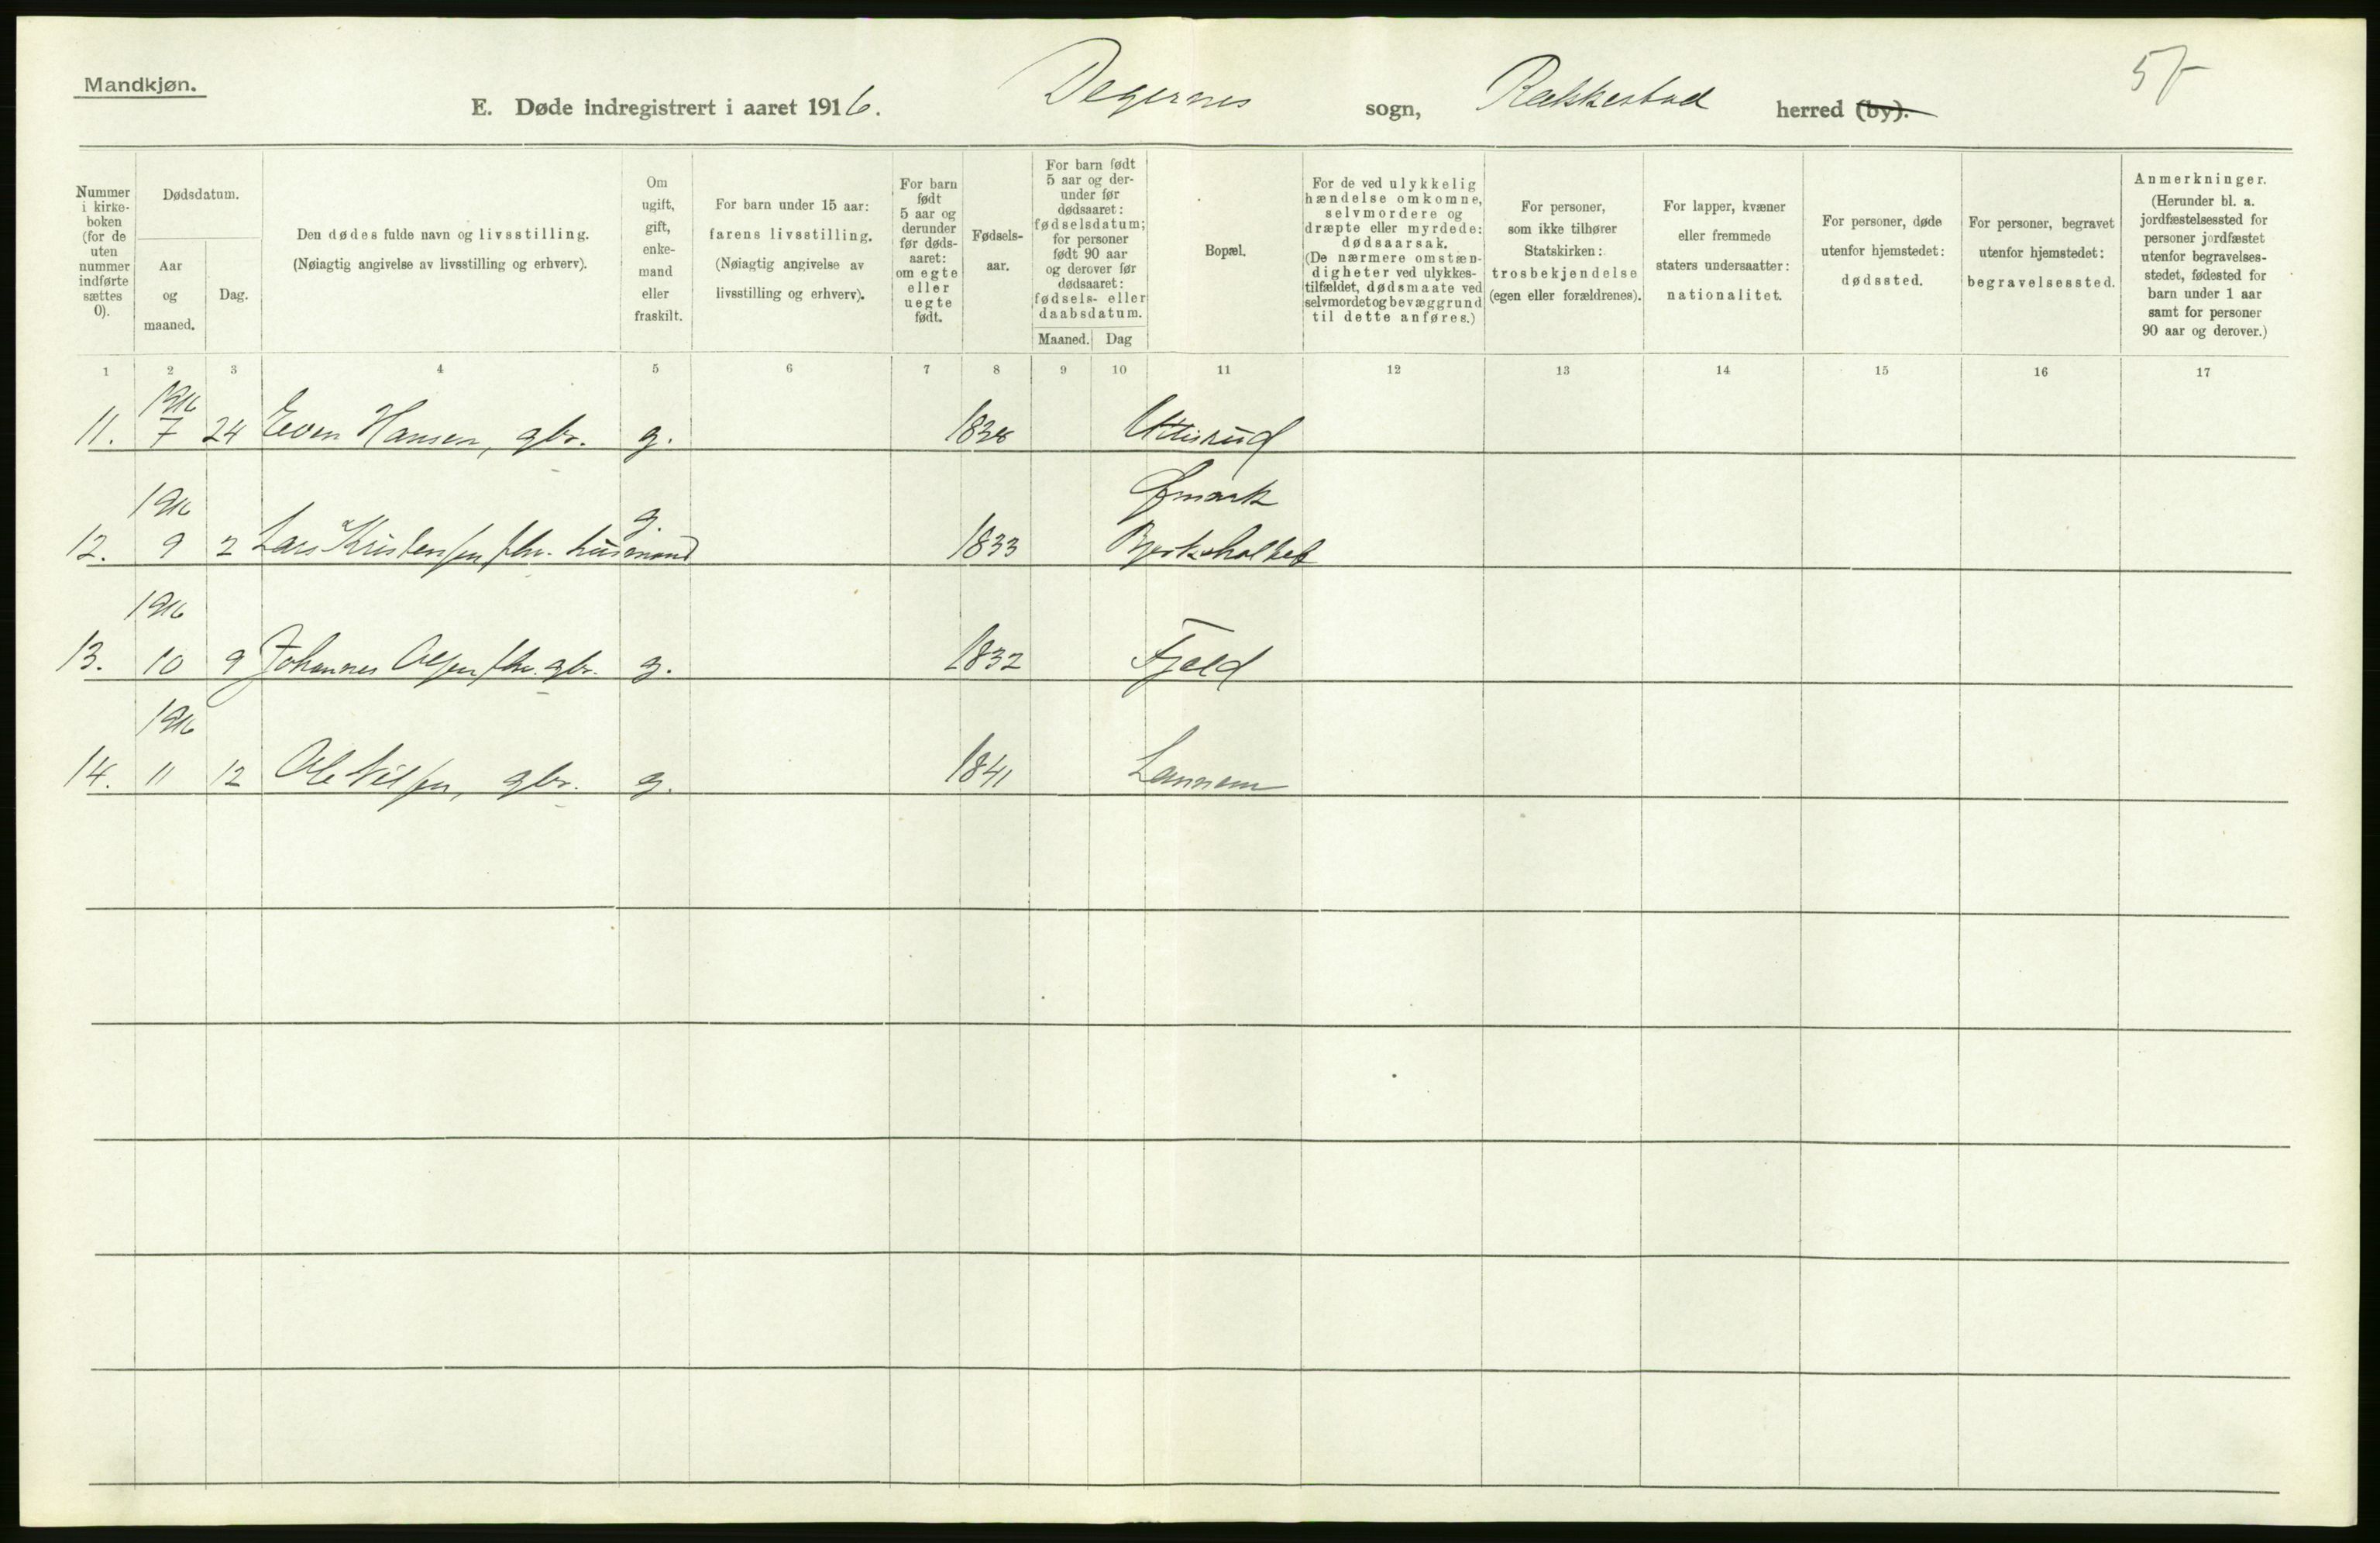 Mandkjøn.
E. Døde indregistrert i aaret 1916. Degernes sogn, Rakkestad herred (by).
Nummer i kirkeboken (for de uten nummer indførte sættes 0).
Dødsdatum.
Aar og maaned.
Dag.
Den dødes fulde navn og livsstilling.
(Nøiagtig angivelse av livsstilling og erhverv).
Om ugift, gift, enkemand eller fraskilt.
For barn under 15 aar: farens livsstilling.
(Nøiagtig angivelse av livsstilling og erhverv).
For barn født 5 aar og derunder før dødsaaret: om egte eller uegte født.
Fødselsaar.
For barn født 5 aar og derunder før dødsaaret: fødselsdatum; for personer født 90 aar og derover før dødsaaret: fødsels- eller daabsdatum.
Maaned. Dag
Bopæl.
For de ved ulykkelig hændelse omkomne, selvmordere og dræpte eller myrdede: dødsaarsak.
(De nærmere omstændigheter ved ulykkestilfældet, dødsmaate ved selvmordet og bevæggrund til dette anføres.)
For personer, som ikke tilhører Statskirken: trosbekjendelse (egen eller forældrenes).
For lapper, kvæner eller fremmede staters undersaatter: nationalitet.
For personer, døde utenfor hjemstedet: dødssted.
For personer, begravet utenfor hjemstedet: begravelsessted.
Anmerkninger.
(Herunder bl. a. jordfæstelsessted for personer jordfæstet utenfor begravelsesstedet, fødested for barn under 1 aar samt for personer 90 aar og derover.)
1 2 3 4 5 6 7 8 9 10 11 12 13 14 15 16 17
1916
11. 7 24 Even Hansen, gbr. g.
1916 g.
12. 9 2 Lars Kristensen fhv. husmand 1833
1916
13. 10 9 Johannes Olsen fhv. gbr. g. 1832 Fjeld
1916
14. 11 12 Ole Nilsen, gbr. g. 1841 Lannem